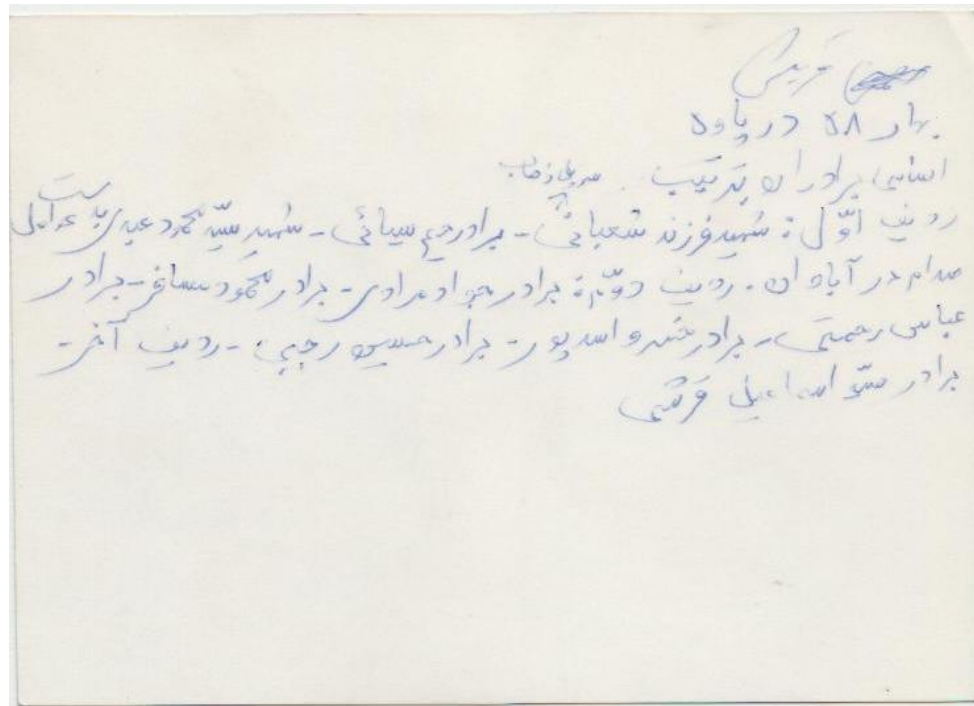 قریشی
بهار ۵۸ در پاوه
اسامی برادران بترتیب سرپل ذهاب
ردیف اوّل: شهید فرزند شعبانی - برادر سیائی - شهید سیّد محمود عبدی بدست عوامل
صدام در آبادان - ردیف دوّم: برادر جواد مرادی - برادر محمود مسافر - برادر
عباس رحمتی - برادر خسرو اسدپور - برادر حسین رجبی - ردیف آخر -
برادر اسماعیل قریشی